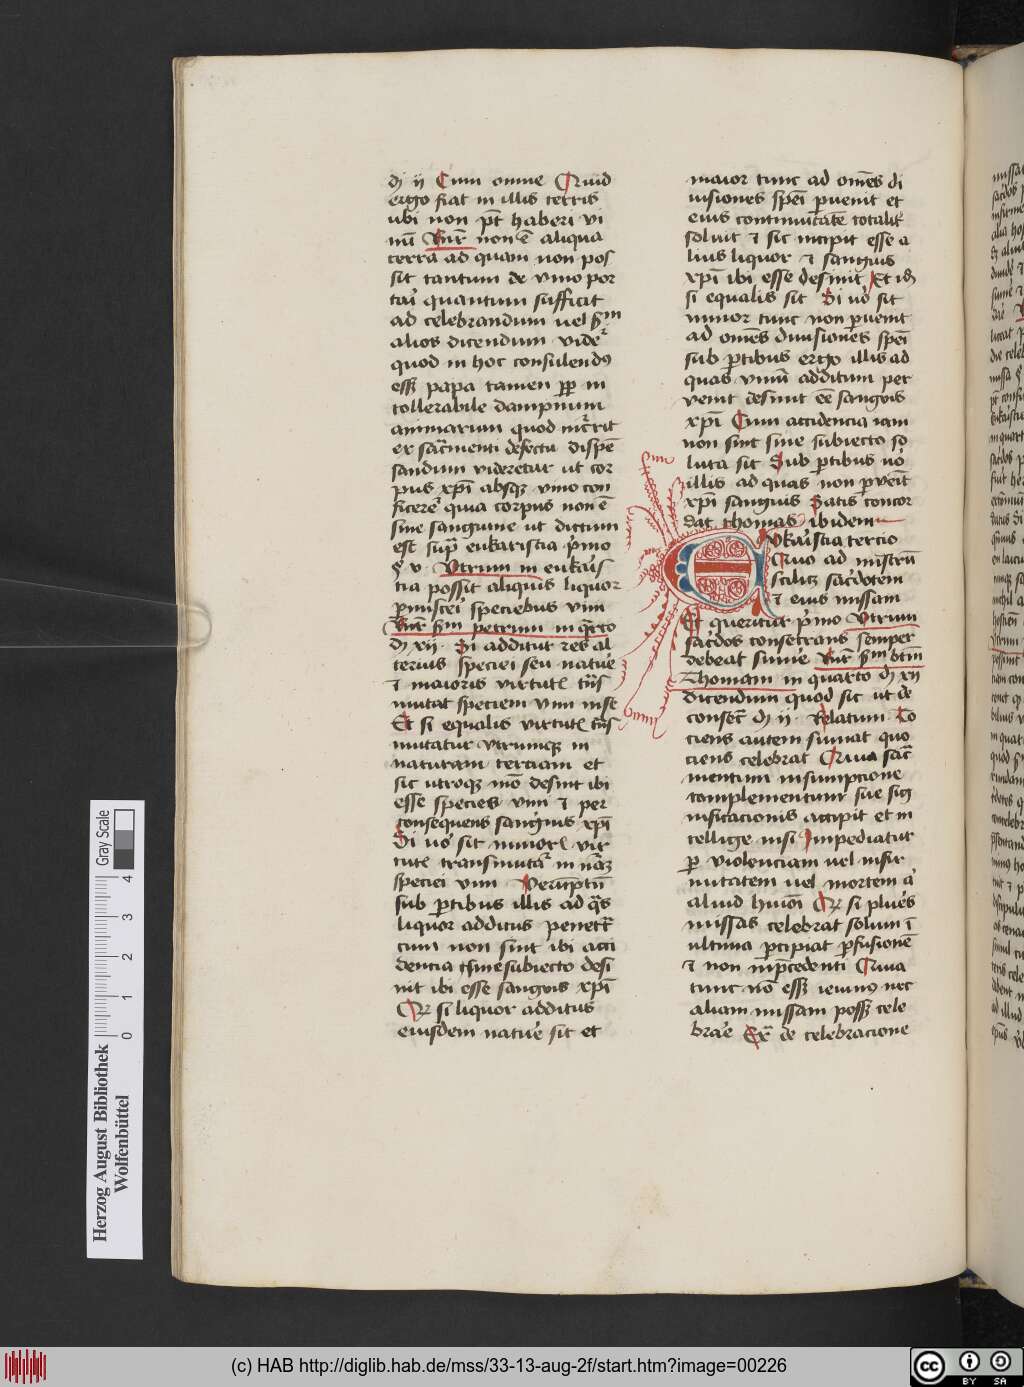 dͥ ij Cum omne Quid
ergo fiat in illis terris
ubi non pt̄ haberi vi
nū Rn̄r non ē aliqua
terra ad quam non pos
sit tantum de vino por
tari quantum sufficit
ad celebrandum uel scd̄m
alios dicendum vider̄
quod in hoc consulendꝰ
essꝫ papa tamen ꝓp̄ in
tollerabile dampnum
animarum quod incr̄rit
ex sac̄menti defectu dispē
sandum videretur ut cor
pus xp̄i absqꝫ vino con
ficeret̄ quia corpus non ē
sine sanguine ut dictum
est sup̄ eukaristia p̄mo
§ v Utrum in eukaris
tia possit aliquis liquor
ꝑmisceri speciebus vini
Rn̄r scd̄m petrum in q̄rto
dͥ xij Si additur res al
terius speciei seu nature
⁊ maioris virtutꝭ tūc
mutat speciem vini in se
Et si equalis virtutꝭ tūc
mutatur utrumqꝫ in
naturam terciam et
sic utroqꝫ mō desinit ibi
esse species vini ⁊ per
consequens sanguis xp̄i
Si uō sit minorꝭ vir
tutꝭ transmutat̄ in nāꝫ
speciei vini Verūptn̄
sub ꝑtibus illis ad q̄s
liquor additus penetr̄t
cum non sint ibi acci
dencia sine subiecto desi
nit ibi esse sanguis xp̄i
Qꝛ si liquor additus
eiusdem nature sit et
maior tunc ad om̄es di
uisiones spēi ꝑuenit et
eius continuitatē totalit̄
soluit ⁊ sic incipit esse a
lius liquor ⁊ sanguis
xp̄i ibi esse desinit Et idͫ
si equalis sit Si uō sit
minor tunc non ꝑuenit
ad om̄es diuisiones spēi
sub ꝑtibus ergo illis ad
quas vinū additum per
venit desinit eē sanguis
xp̄i Cum accidencia iam
non sint sine subiecto so
luta sit Sub ꝑtibus uō
illis ad quas non ꝑveīt
xp̄i sanguis Satis concor
dat thomas ibidem
Eukaristia tercio
Quo ad ministrū
scilicꝫ sacerdotem
⁊ eius missam
Et queritur p̄mo Utrum
sacerdos consecrans semper
debeat sumere Rn̄r scd̄m btm̄
Thomam in quarto dͥ xij
dicendum quod sic ut de
consec̄ dͥ ij Relatum To
ciens autem sumat quo
ciens celebrat Quia sac̄
mentum in sumpcione
complementum sue sig
nificacionis accipit et in
tellige nisi Impediatur
ꝑ violenciam uel infir
mitatem uel mortem a
aliud huiōi Qꝛ si plures
missas celebrat solum ī
ultima ꝑcipiat ꝑfusionē
⁊ non in p̄cedenti Quia
tunc nō essꝫ ieiunꝰ nec
aliam missam possꝫ cele
brare Ex̄ de celebracione
Herzog August Bibliothek
Wolfenbüttel
0 1 2 3 4
Gray Scale
(c) HAB http://diglib.hab.de/mss/33-13-aug-2f/start.htm?image=00226
cc
BY SA